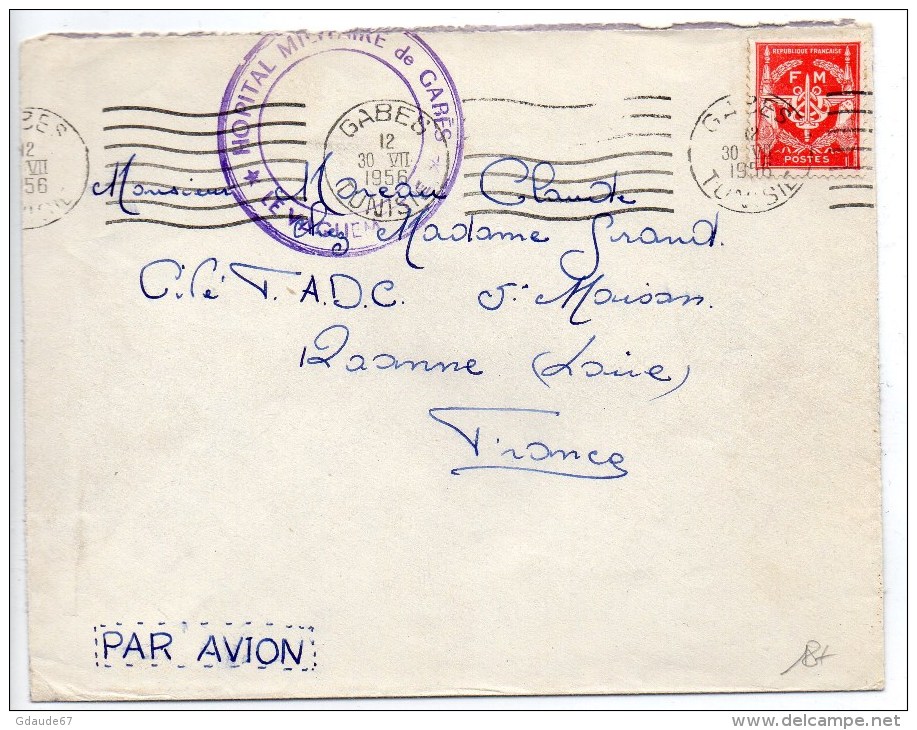 HOPITAL MILITAIRE de GABÈS
LE VAGUEM
GABES
12
30 VII
1956
TUNISIE
REPUBLIQUE FRANÇAISE
F M
POSTES
GABES
12
30 VII
1956
TUNISIE
BES
12
VII
56
SIE
Monsieur Moreau Claude
chez Madame Girand.
Cité T.A.D.C. 5e Maison.
Roanne (Loire)
France
PAR AVION
Gdaude67
www.delcampe.net